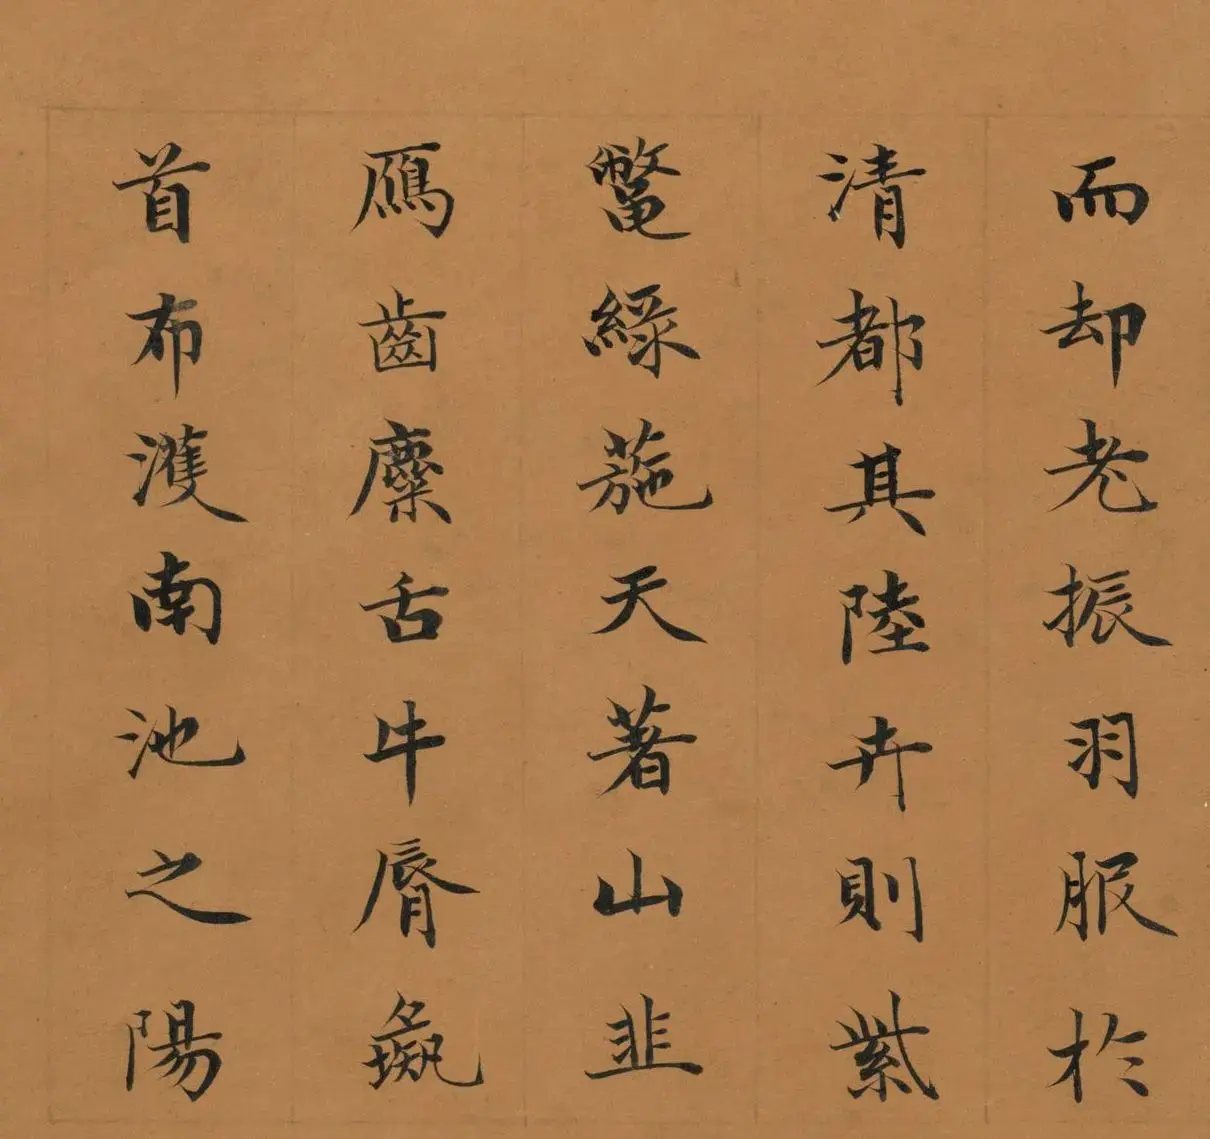 而却老振羽服於
清都其陸卉則紫
鼈綠葹天著山韭
鴈齒麋舌牛脣彘
首布濩南池之陽